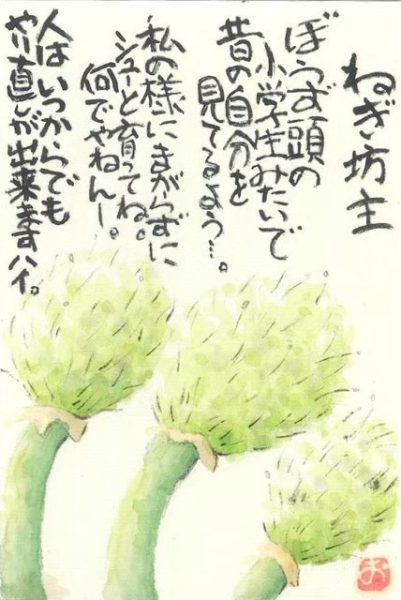 ねぎ坊主
ぼうず頭の
小学生みたいで
昔の自分を
見てるよう…。
私の様にまがらずに
シューと育てね。
何でやねんー。
人はいつからでも
やり直しが出来ますハイ。
お